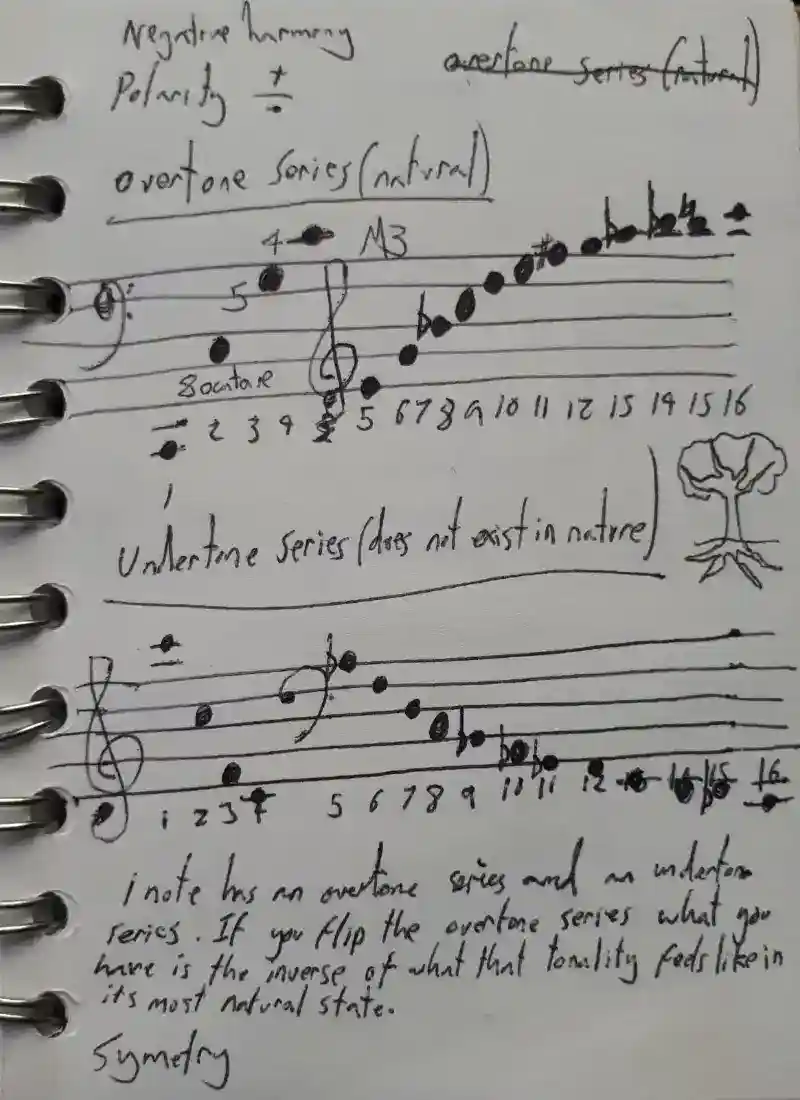 Negative harmony
Polarity + -
overtone series (natural)
overtone series (natural)
4 M3
5
8 octave
2 3 4 5 6 7 8 9 10 11 12 15 14 15 16
1
Undertone series (does not exist in nature)
1 2 3 4 5 6 7 8 9 10 11 12 14 15 16
1 note has an overtone series and an undertone
series. If you flip the overtone series what you
have is the inverse of what that tonality feels like in
its most natural state.
Symetry